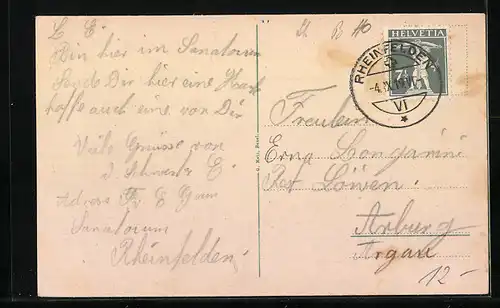 L. E.
Bin hier im Sanatorium
Sende Dir hier eine Kart
hoffe auch eine von Dir
Viele Grüsse von
d. Schwester E.
Adress Fr. E
Sanatorium
Rheinfelden
HELVETIA
RHEINFELDEN
VI
Freulein
Erna Longarini
Rest. Löwen
Arburg
Argau
12-